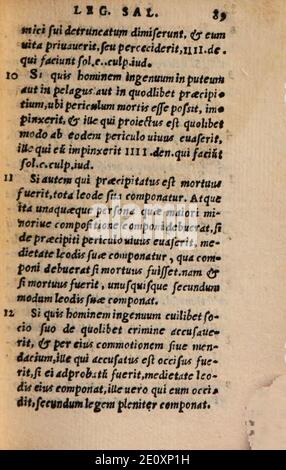 LEG. SAL. 89
mici sui detruncatum dimiserunt, & eum
uita priuauerit, seu percæciderit, IIII. de.
qui faciunt sol. c. culp. iud.
10 Si quis hominem ingenuum in puteum
aut in pelagus aut in quodlibet præcipi
tium, ubi periculum mortis esse posit, im
pinxerit, & ille qui proiectus est quolibet
modo ab eodem periculo uiuus euaserit,
ille qui eū impinxerit IIII. den. qui faciūt
sol. c. culp. iud.
11 Si autem qui præcipitatus est mortuus
fuerit, tota leode sua componatur. Atque
ita unaquæque persona quæ maiori mi
noriue compositione componi debuerat, si
de præcipiti periculo uiuus euaserit, me-
dietate leodis suæ componatur, qua com
poni debuerat si mortuus fuisset. nam &
si mortuus fuerit, unusquisque secundum
modum leodis suæ componat.
12 Si quis hominem ingenuum cuilibet so-
cio suo de quolibet crimine accusaue-
rit, & per eius commotionem siue men-
dacium, ille qui accusatus est occisus fue-
rit, si ei adprobatū fuerit, medietate leo-
dis eius componat, ille uero qui eum occi-
dit, secundum legem pleniter componat.
alamy
Image ID: 2E0XP1H
www.alamy.com